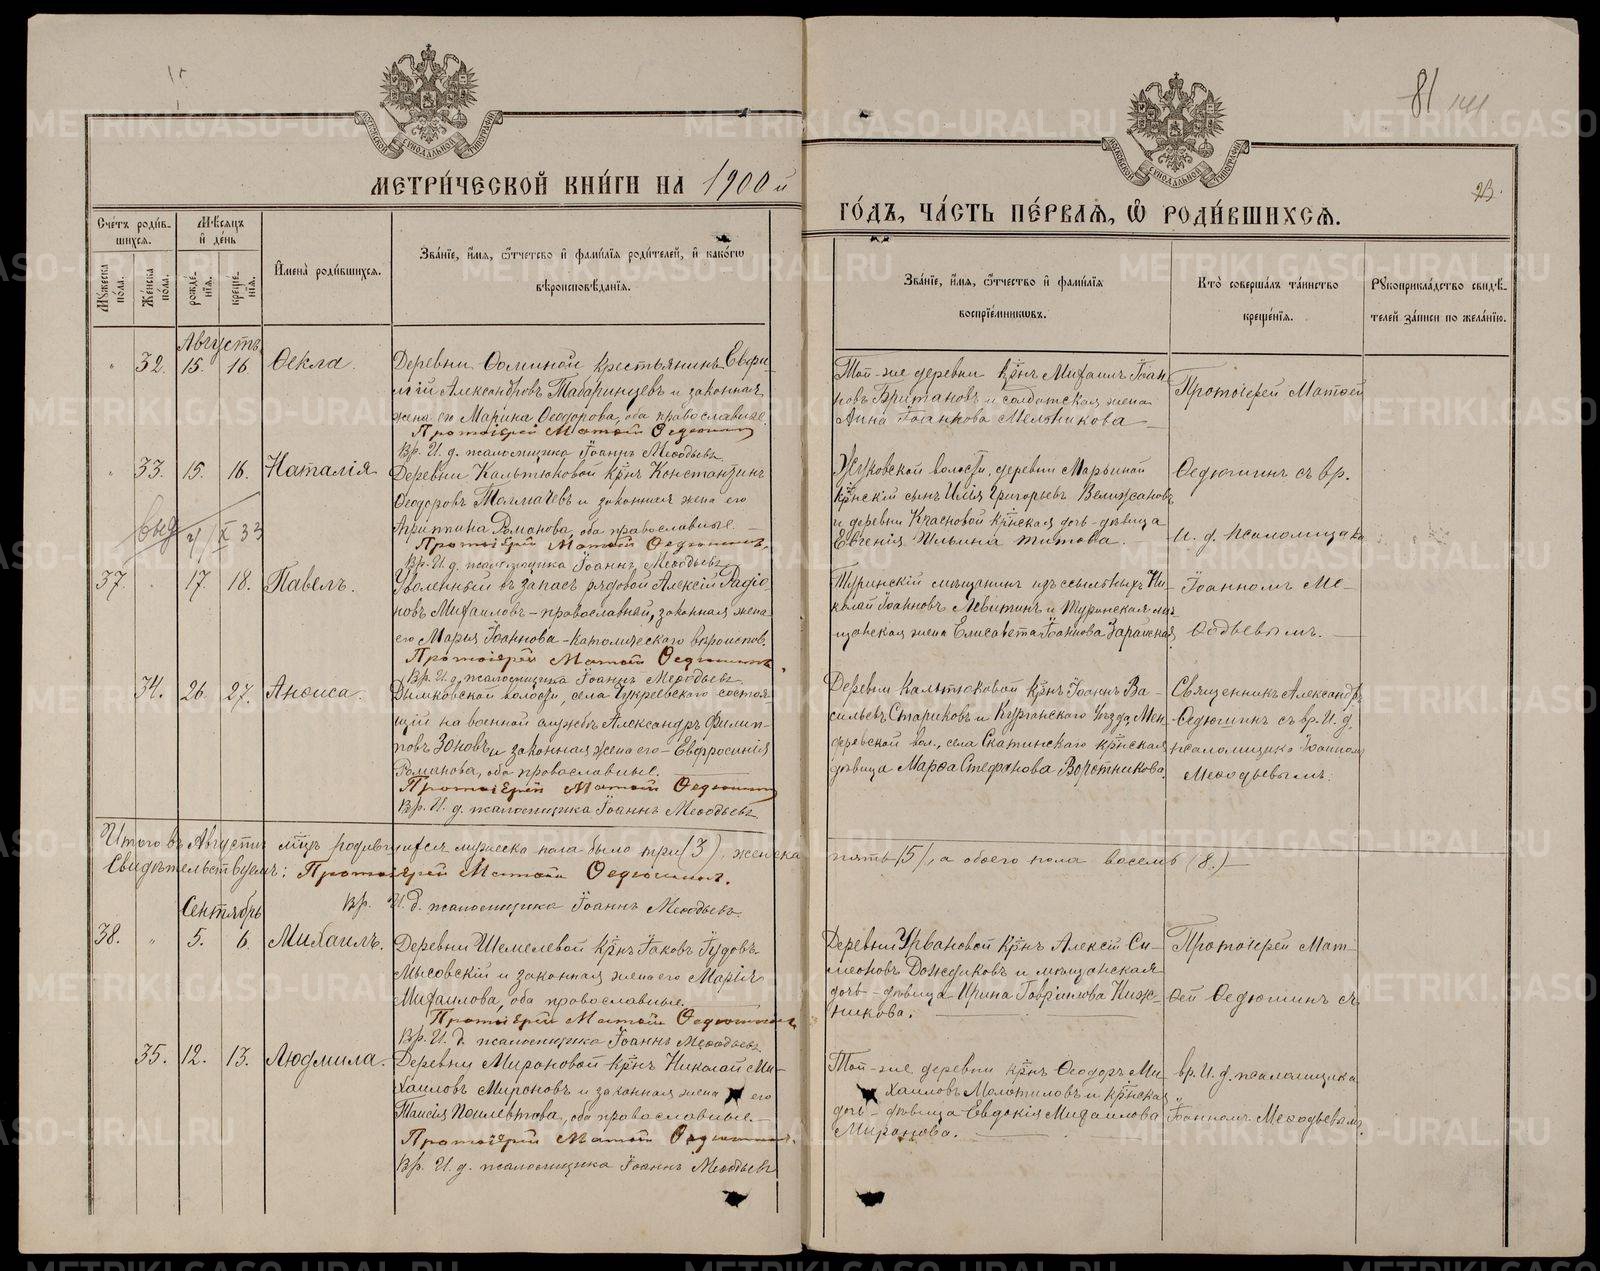 81
МЕТРИ́ЧЕСКОЙ КНИ́ГИ НА 1900 й
ГО́ДЪ, ЧА́СТЬ ПЕ́РВАѦ, Ѡ РОДИ́ВШИХСѦ.
Сче́тъ роди́в-
шихсѧ.
Мѣ́сѧцъ
и де́нь
Мꙋ́жеска
по́ла.
Же́нска
по́ла.
рожде́-
нїѧ.
креще́-
нїѧ.
Имена̀ роди́вшихсѧ.
Зва́нїе, и́мѧ, ѻ́тчество и фами́лїѧ роди́телей, и како́гѡ
вѣроисповѣ́данїѧ.
Зва́нїе, и́мѧ, ѻ́тчество и фами́лїѧ
воспрїе́мникѡвъ.
Кто̀ соверша́лъ та́инство
креще́нїѧ.
Рꙋкоприкла́дство свидѣ́-
телей за́писи по жела́нїю.
Августъ
32. 15. 16. Ѳекла.
Деревни Ѳоминой крестьянинъ Евфи-
мій Александровъ Табаринцевъ и законная
жена его Марина Ѳеодорова, оба православные.
Протоіерей Матѳій Ѳедюшинъ
Вр. И. д. псаломщика Іоаннъ Меѳодьевъ
Той-же деревни кр̃нъ Михаилъ Іоан-
новъ Британовъ и солдатская жена
Анна Іоаннова Мельникова
Протоіерей Матѳей
33. 15. 16. Наталія
Деревни Кальтюковой кр̃нъ Константинъ
Ѳеодоровъ Толмачевъ и законная жена его
Агриппина Романова, оба православные.
Протоіерей Матѳій Ѳедюшинъ.
Вр. И. д. псаломщика Іоаннъ Меѳодьевъ
Жуковской волости, деревни Марьиной
кр̃нскій сынъ Илія Григорьевъ Велижановъ
и деревни Красновой кр̃нская дочь-дѣвица
Евгенія Ильина Титова.
Ѳедюшинъ съ вр.
И. д. псаломщика
37. 17. 18. Павелъ.
Уволенный въ запасъ рядовой Алексій Радіо-
новъ Михаиловъ - православный, законная жена
его Марія Іоаннова - католическаго вѣроиспов.
Протоіерей Матѳій Ѳедюшинъ.
Вр. И. д. псаломщика Іоаннъ Меѳодьевъ.
Туринскій мѣщанинъ изъ ссыльныхъ Ни-
колай Іоанновъ Левитинъ и Туринская мѣ-
щанская жена Елисавета Іоаннова Зарайская
Іоанномъ Ме-
ѳодьевымъ.
34. 26. 27. Анѳиса.
Дымковской волости, села Чукреевского состоя-
щій на военной службѣ Александръ Филип-
повъ Зоновъ и законная жена его - Евфросинія
Романова, оба православные.
Протоіерей Матѳій Ѳедюшинъ
Вр. И. д. псаломщика Іоаннъ Меѳодьевъ
Деревни Кальтюковой кр̃нъ Іоаннъ Ва-
сильевъ Стариковъ и Курганскаго уѣзда, Мен-
деревской вол., села Скатинскаго кр̃нская
дѣвица Марѳа Стефанова Воротникова.
Священникъ Александръ
Ѳедюшинъ съ вр. И. д.
псаломщика Іоанномъ
Меѳодьевымъ.
Итого въ Августѣ м̃цѣ родившихся мужеска пола было три (3), женска пять (5), а обоего пола восемь (8.)
Свидѣтельствуемъ: Протоіерей Матѳій Ѳедюшинъ.
Вр. И. д. псаломщика Іоаннъ Меѳодьевъ.
Сентябрь
38. 5. 6. Михаилъ.
Деревни Шемелевой кр̃нъ Іаковъ Іудовъ
Мысовскій и законная жена его Марія
Михаилова, оба православные.
Протоіерей Матѳій Ѳедюшинъ
Вр. И. д. псаломщика Іоаннъ Меѳодьевъ
Деревни Урвановой кр̃нъ Алексій Си-
меоновъ Дождиковъ и мѣщанская
дочь - дѣвица Ирина Гавріилова Ниж-
никова.
Протоіерей Мат-
ѳей Ѳедюшинъ съ
35. 12. 13. Людмила.
Деревни Мироновой кр̃нъ Николай Ми-
хаиловъ Мироновъ и законная жена его
Таисія Поилевктова, оба православные.
Протоіерей Матѳій Ѳедюшинъ.
Вр. И. д. псаломщика Іоаннъ Меѳодьевъ
Той-же деревни кр̃нъ Ѳеодоръ Ми-
хаиловъ Молотиловъ и кр̃нская
дочь - дѣвица Евдокія Михаилова
Миронова.
вр. И. д. псаломщика
Іоанномъ Меѳодьевымъ.
METRIKI.GASO-URAL.RU